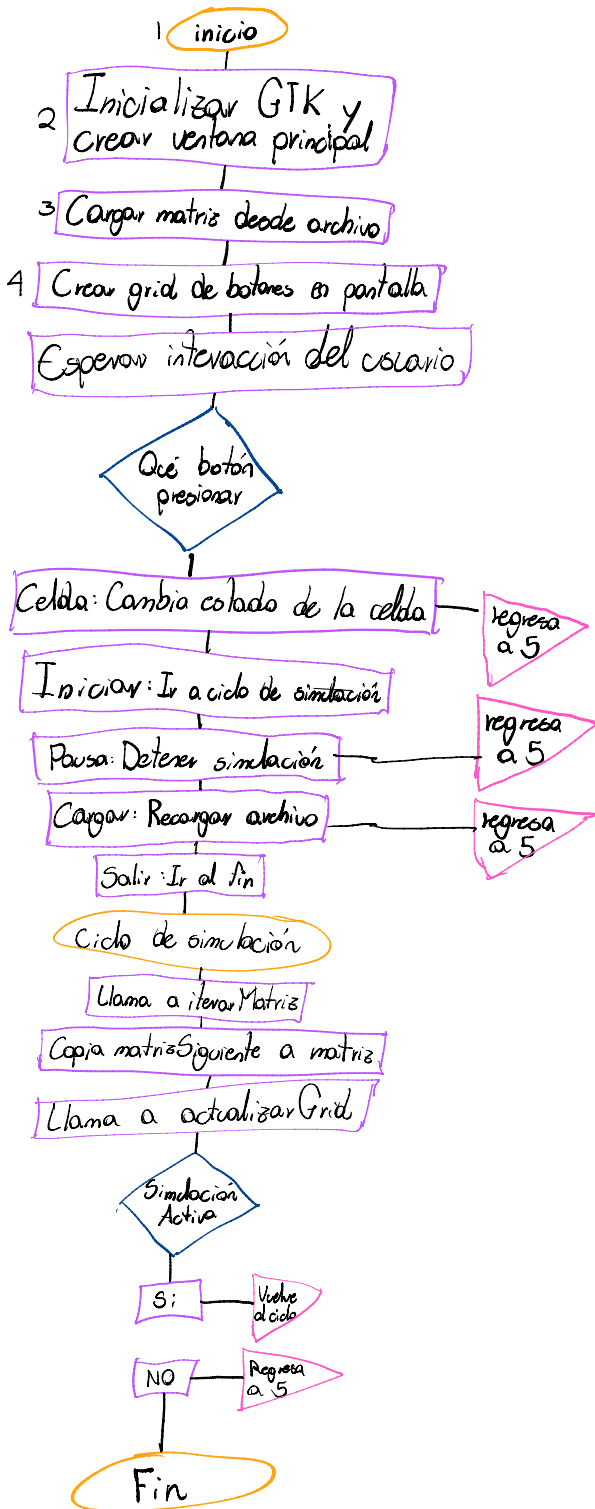 1 inicio
2 Inicializar GTK y
crear ventana principal
3 Cargar matriz desde archivo
4 Crear grid de botones en pantalla
Esperar interacción del usuario
Qué botón
presionar
Celda: Cambia estado de la celda
regresa
a 5
Iniciar: Ir a ciclo de simulación
Pausa: Detener simulación
regresa
a 5
Cargar: Recargar archivo
regresa
a 5
Salir: Ir al fin
Ciclo de simulación
Llama a iterarMatriz
Copia matrizSiguiente a matriz
Llama a actualizarGrid
Simulación
Activa
Si
Vuelve
al ciclo
NO
Regresa
a 5
Fin